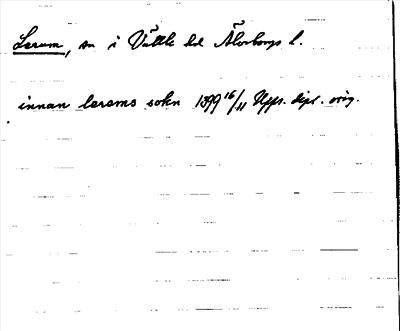 Lerum, sn i Vättle hd Älvsborgs l.
innan lerems sokn 1399 16/11 Upps. dipl. orig.